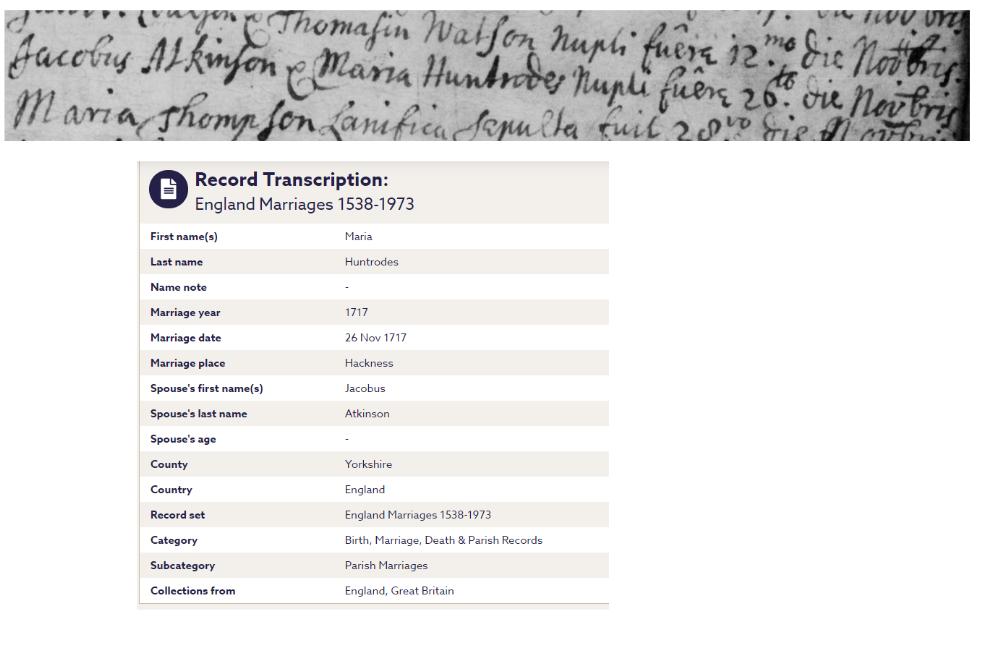 Thomasin Watson Nupti fuêre 12.mo die Novbris
Jacobus Atkinson & Maria Huntrodes Nupti fuêre 26.to die Novbris.
Maria Thompson Lanifica Sepulta fuit 28vo die Novbris
Record Transcription:
England Marriages 1538-1973
First name(s) Maria
Last name Huntrodes
Name note -
Marriage year 1717
Marriage date 26 Nov 1717
Marriage place Hackness
Spouse's first name(s) Jacobus
Spouse's last name Atkinson
Spouse's age -
County Yorkshire
Country England
Record set England Marriages 1538-1973
Category Birth, Marriage, Death & Parish Records
Subcategory Parish Marriages
Collections from England, Great Britain